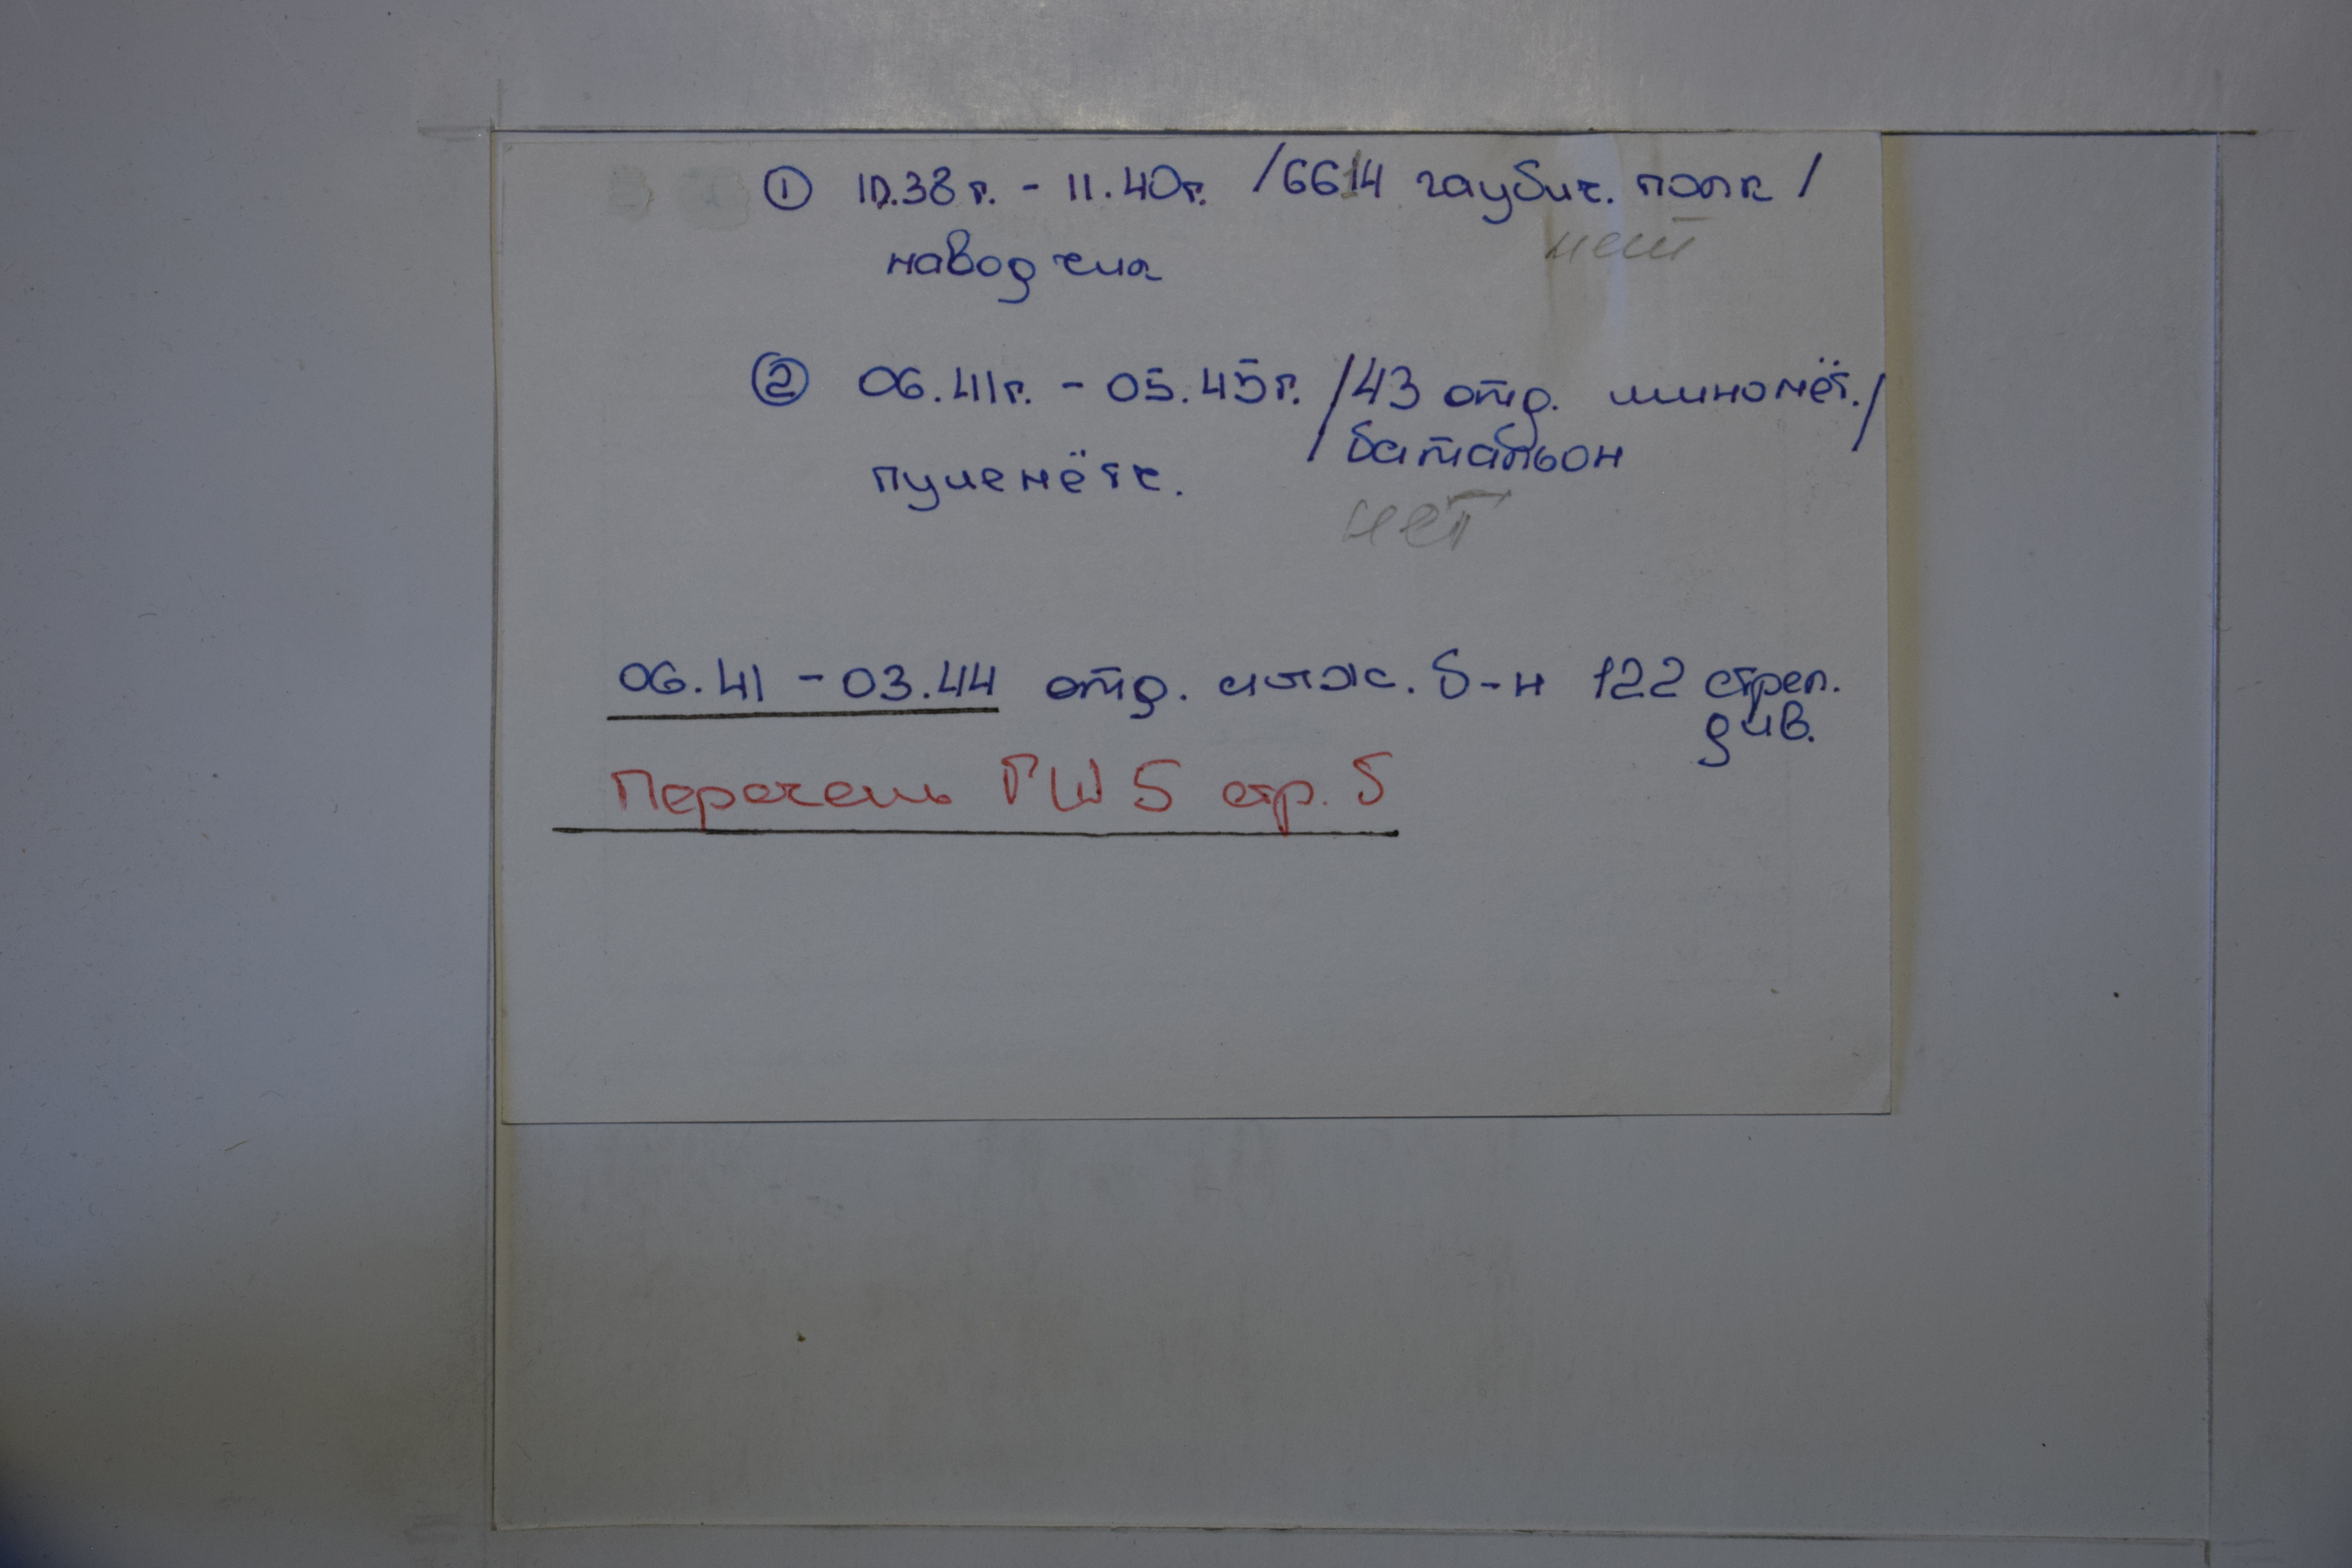 ① 10.38 г. - 11.40 г. /6614 гаубич. полк /
нет
наводчик
② 06.41 г. - 05.45 г. /43 отд. миномёт./
батальон
пулемётч.
нет
06.41 - 03.44 отд. инж. б-н 122 стрел.
див.
Перечень ГШ 5 стр. 5